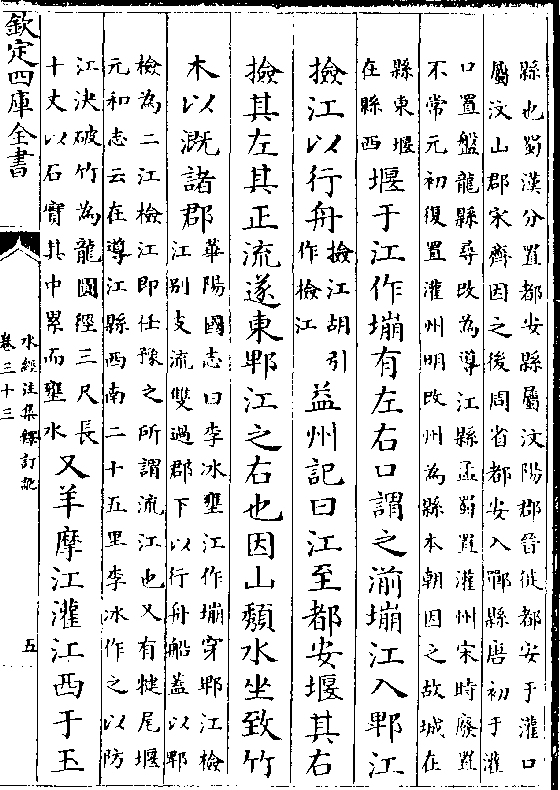 縣也蜀漢分置都安縣屬汶陽郡晉徙都安于灌口
屬汶山郡宋齊因之後周省都安入郫縣唐初于灌
口置盤龍縣尋改為導江縣孟蜀置灌州宋時廢置
不常元初復置灌州明改州為縣本朝因之故城在
縣東堰
在縣西
堰于江作堋有左右口謂之湔堋江入郫江
撿江以行舟
撿江胡引
作檢江
益州記曰江至都安堰其右
撿其左其正流遂東郫江之右也因山頽水坐致竹
木以溉諸郡
華陽國志曰李冰壅江作堋穿郫江檢
江别支流雙過郡下以行舟船蓋以郫
檢為二江檢江即任豫之所謂流江也又有犍尾堰
元和志云在導江縣西南二十五里李冰作之以防
江決破竹為龍圜徑三尺長
十丈以石實其中累而壅水
又羊摩江灌江西于玉
欽定四庫全書
水經注集釋訂訛
卷三十三
五